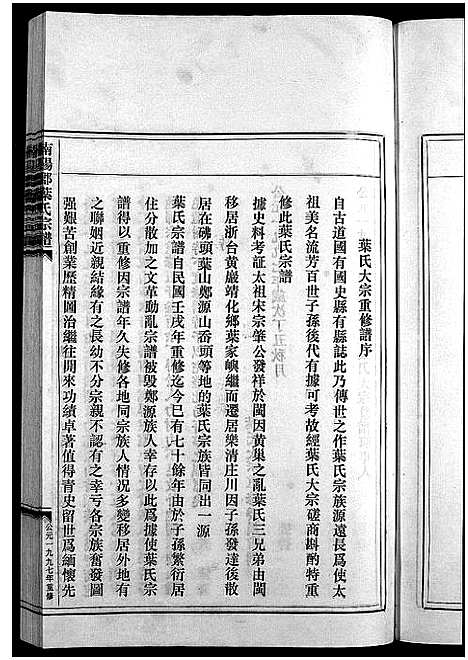 葉氏大宗重修譜序
自古道國有國史縣有縣誌此乃傳世之作葉氏宗族源遠長爲使太
祖美名流芳百世子孫後代有據可考故經葉氏大宗磋商斟酌特重
修此葉氏宗譜
據史料考証太祖宋宗肇公發祥於閩因黄巢之亂葉氏三兄弟由閩
移居浙台黄巖靖化鄉葉家嶼繼而遷居樂清庄川因子孫發達後散
居在砩頭葉山鄭源山岙頭等地的葉氏宗族皆同出一源
葉氏宗譜自民國壬戌年重修迄今已有七十餘年由於子孫繁衍居
住分散加之文革動亂宗譜被毁鄭源族人幸存以此爲據使葉氏宗
譜得以重修因宗譜年久失修各地同宗族人情況多變移居外地有
之聯姻近親結緣有之長幼不分宗親不認有之幸亏各宗族奮發圖
强艱苦創業歷精圖治繼往開來功績卓著值得青史留世爲緬懷先
南陽郡葉氏宗譜
公元一九九七年重修